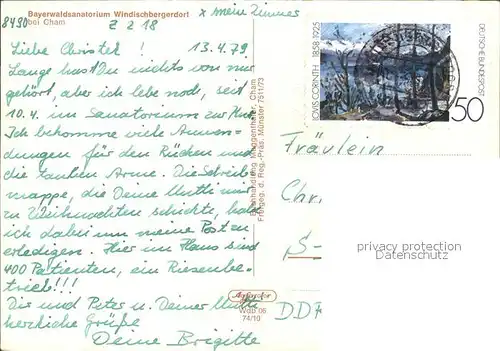 Bayerwaldsanatorium Windischbergerdorf
8490 bei Cham
Z 218
x mein Zimmer
Liebe Christel! 13.4.79
Lange hast Du nichts von mir
gehört, aber ich lebe noch, seit
10.4. im Sanatorium zur Kur.
Ich bekomme viele Anwen-
dungen für den Rücken und
die tauben Arme. Die Schreib-
mappe, die Deine Mutti mir
zu Weihnachten schickte, habe
ich dabei um meine Post zu
erledigen. Hier im Haus sind
400 Patienten, ein Riesenbe-
trieb!!!
Dir und Peter u. Deiner Mutti
herzliche Grüße
Deine Brigitte
Buchhandlung Muggenthaler, Cham
Freigeg. d. Reg.-Präs. Münster 7511/73
Wdb 06
74/10
LOVIS CORINTH 1858-1925
DEUTSCHE BUNDESPOST
50
Fräulein
Chr.
S-
DDR
privacy protection
watermark